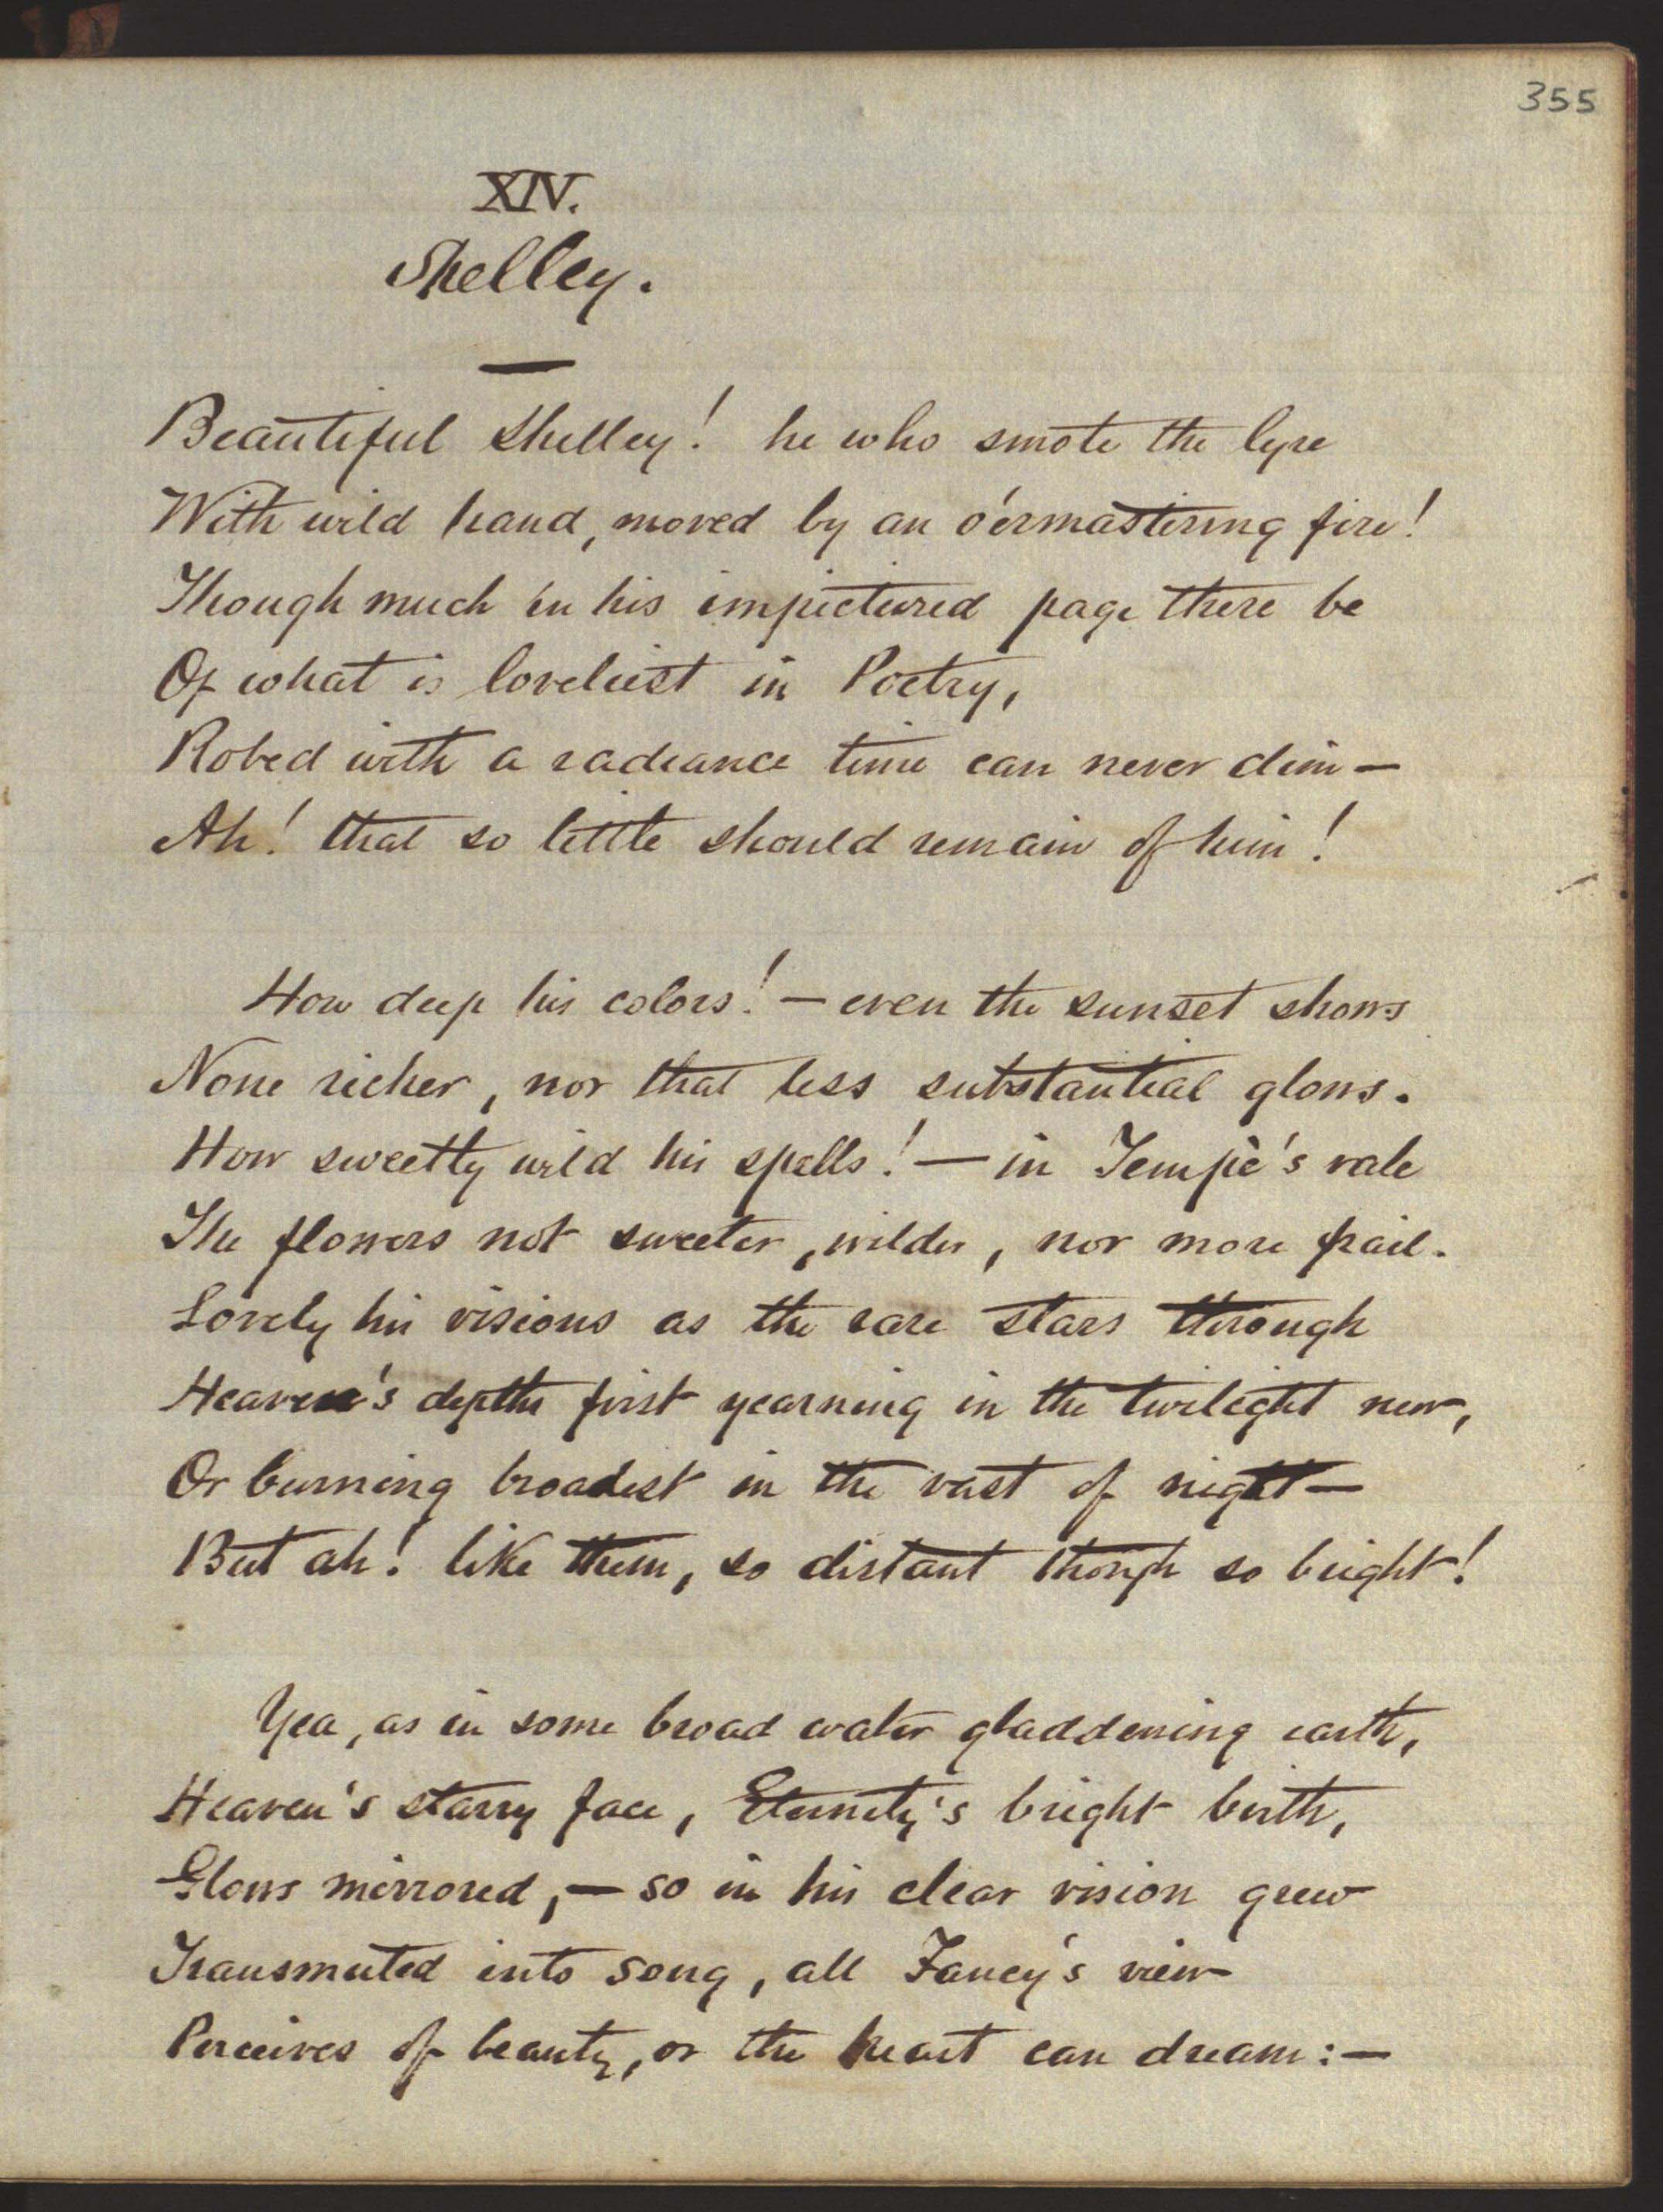 355
XIV.
Shelley.
Beautiful Shelley! he who smote the lyre
With wild hand, moved by an o'ermastering fire!
Though much in his impictured page there be
Of what is loveliest in Poetry,
Robed with a radiance time can never dim —
Ah! that so little should remain of him!
How deep his colors! — even the sunset shows
None richer, nor that less substantial glows.
How sweetly wild his spells! — in Tempè's vale
The flowers not sweeter, wilder, nor more frail.
Lovely his visions as the rare stars through
Heaven's depths first yearning in the twilight new,
Or burning broadest in the vast of night —
But ah! like them, so distant though so bright!
Yea, as in some broad water gladdening earth,
Heaven's starry face, Eternity's bright birth,
Glows mirrored, — so in his clear vision grew
Transmuted into song, all Fancy's view
Perceives of beauty, or the heart can dream: —